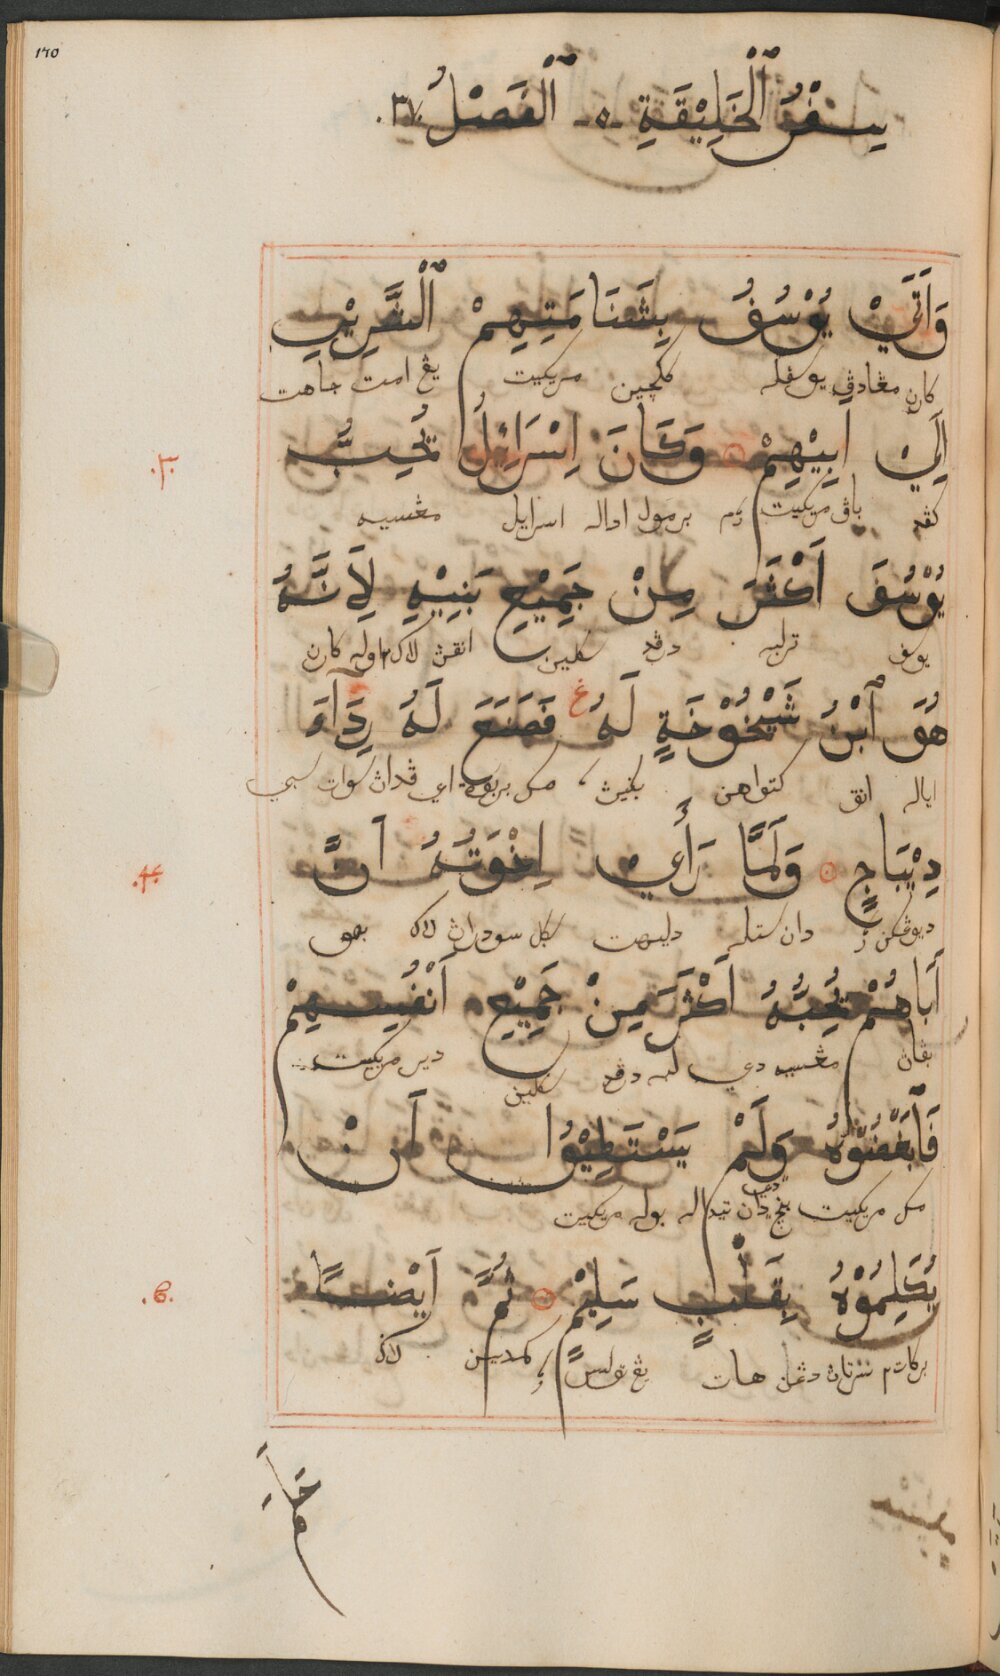 ١٦٥
سِفْرُ ٱلْخَلِيْقَةِ ـ٥ـ ٱلْفَصْلُ ٣٧.
وَاَتَيْ يُوْسُفُ بِشَنَامَتِهِمْ ٱلْشَّرِيْرِ
كارن مڠادڤ يوسفله مريكيت يڠ امت جاهت
اِلَيْ اَبِيْهِمْ وَكَانَ اِسْرَائِلُ يُحِبُّ
.٣.
كڤد باڤ مريكيت برمول اداله اسرايل مڠسيه
يُوْسُفَ اَكْثَرَ مِنْ جَمِيْعِ بَنِيْهِ لِاَنَّهُ
يوسف ترلبه درڤد سكلين انقڽ لاك٢ اوله كارن
هُوَ ٱبْنُ شَيْخُوْخَةٍ لَهُ فَصَنَعَ لَهُ رِدَآءَ
اياله انق كتواهن بڬيڽ مك بربوت اي سوات
دِيْبَاجٍ وَلَمَّا رَأَيْ اِخْوَتُهُ اَنَّ
.٤.
دان ستله دليهت سكل سودراڽ لاك بهو
اَبَاهُمْ يُحِبُّهُ اَكْثَرَ مِنْ جَمِيْعِ اَنْفُسِهِمْ
بڤان مڠسيه دي لبه درڤد سكلين دير مريكيت
فَٱبْغَضُوْهُ وَلَمْ يَسْتَطِيْعُوا اَنْ
مك مريكيت بنچي دي دان تيداله بوله مريكيت
يُكَلِّمُوْهُ بِقَلْبٍ سَلِيْمٍ ثُمَّ اَيْضًا
.٥.
بركات٢ سرتاڽ دڠن هات يڠ تولس كمدين لاك